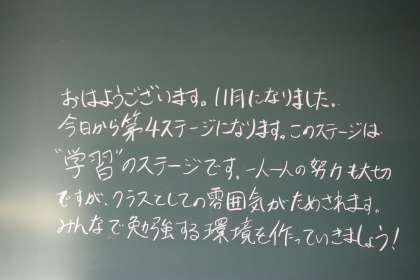 おはようございます。11月になりました。
今日から第4ステージになります。このステージは
"学習"のステージです。一人一人の努力も大切
ですが、クラスとしての雰囲気がためされます。
みんなで勉強する環境を作っていきましょう!